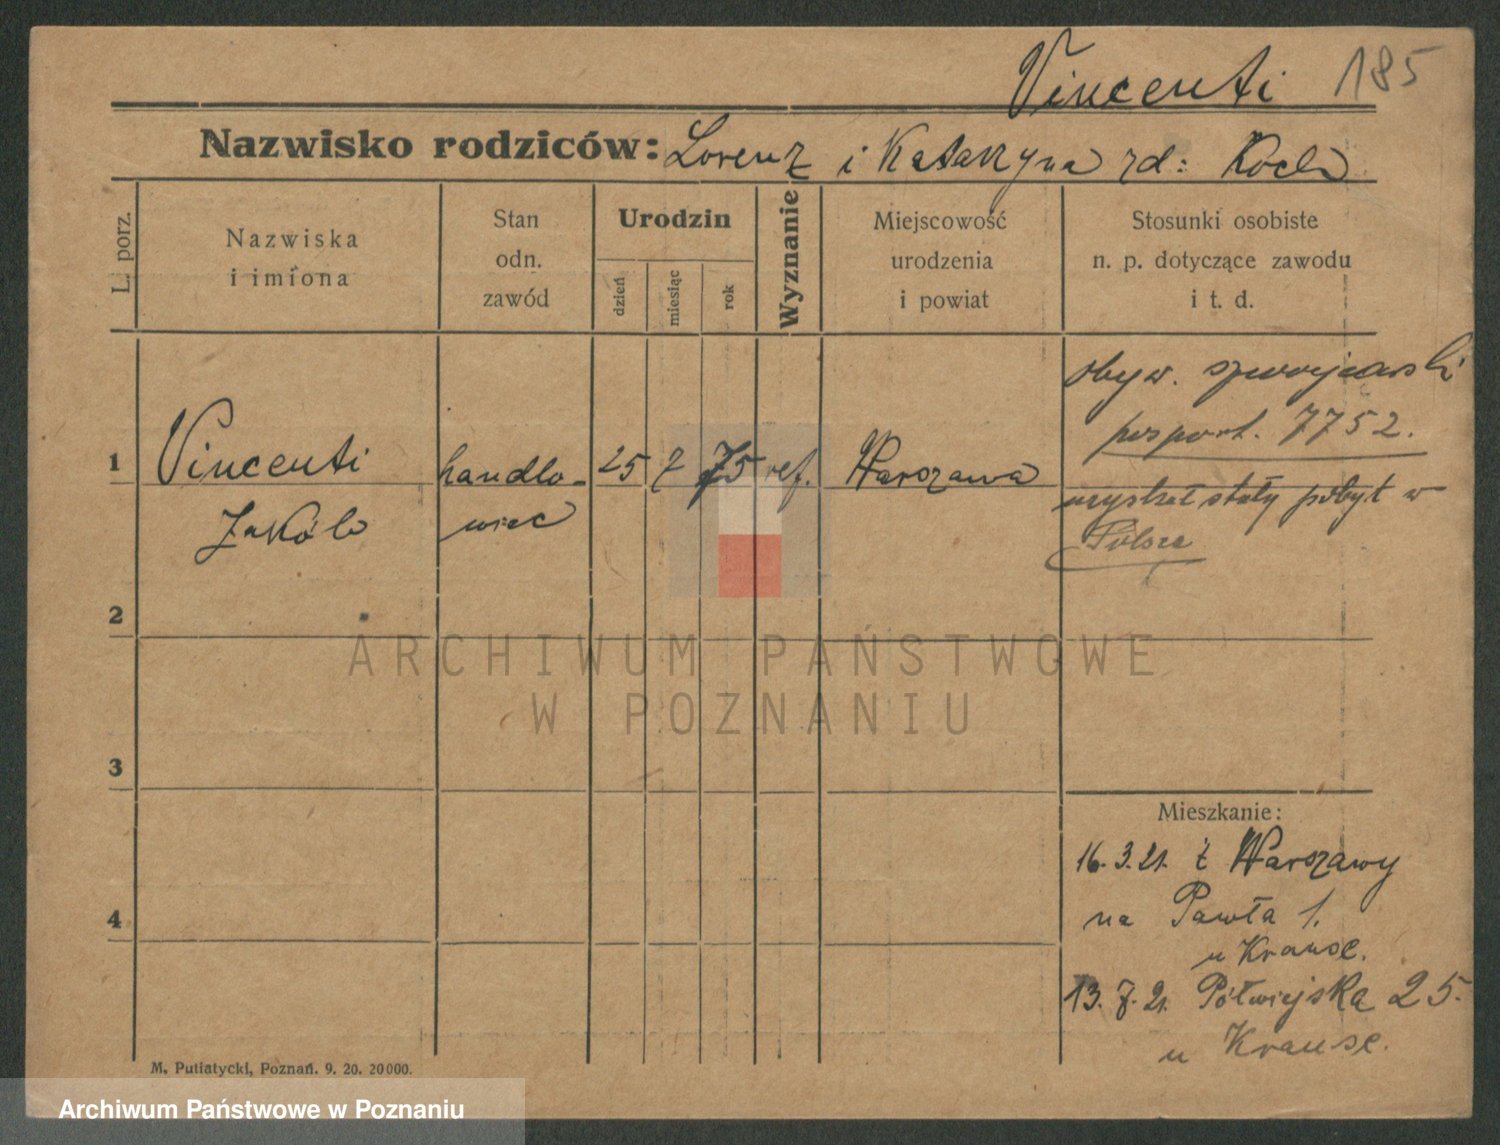 Vincenti 185
Nazwisko rodziców: Lorenz i Katarzyna rd: Koch
L. porz.
Nazwiska
i imiona
Stan
odn.
zawód
Urodzin
dzień
miesiąc
rok
Wyznanie
Miejscowość
urodzenia
i powiat
Stosunki osobiste
n. p. dotyczące zawodu
i t. d.
1
Vincenti
Jakób
handlo-
wiec
25 7 75 ref.
Warszawa
obyw. szwajcarski
paszport. 7752.
uzyskał stały pobyt w
Polsce
2
3
4
Mieszkanie:
16.3.21. z Warszawy
na Pawła 1.
u Krause.
13.7.21. Półwiejska 25.
u Krause.
M. Putiatycki, Poznań. 9. 20. 20000.
ARCHIWUM PAŃSTWOWE
W POZNANIU
Archiwum Państwowe w Poznaniu